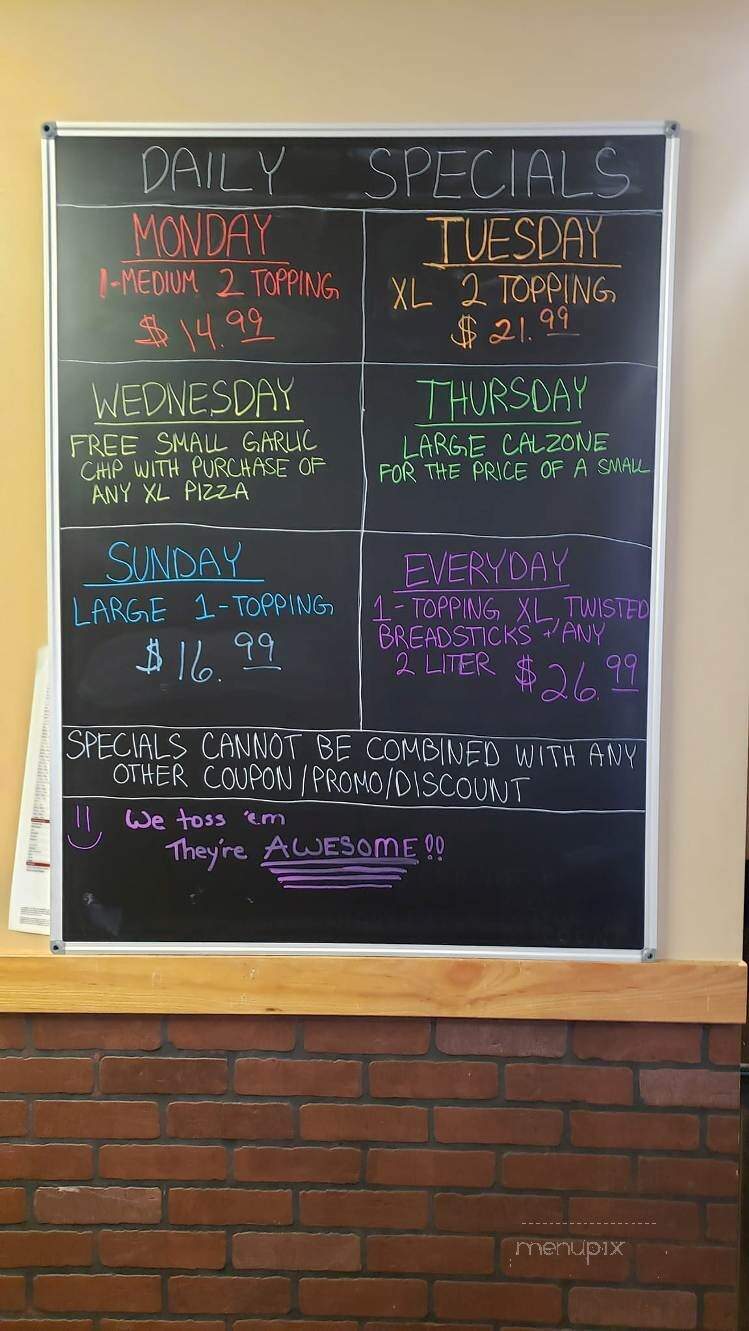 DAILY SPECIALS
MONDAY
1-MEDIUM 2 TOPPING
$14.99
TUESDAY
XL 2 TOPPING
$21.99
WEDNESDAY
FREE SMALL GARLIC
CHIP WITH PURCHASE OF
ANY XL PIZZA
THURSDAY
LARGE CALZONE
FOR THE PRICE OF A SMALL
SUNDAY
LARGE 1-TOPPING
$16.99
EVERYDAY
1-TOPPING XL, TWISTED
BREADSTICKS + ANY
2 LITER $26.99
SPECIALS CANNOT BE COMBINED WITH ANY
OTHER COUPON/PROMO/DISCOUNT
We toss 'em
They're AWESOME!!
menupix